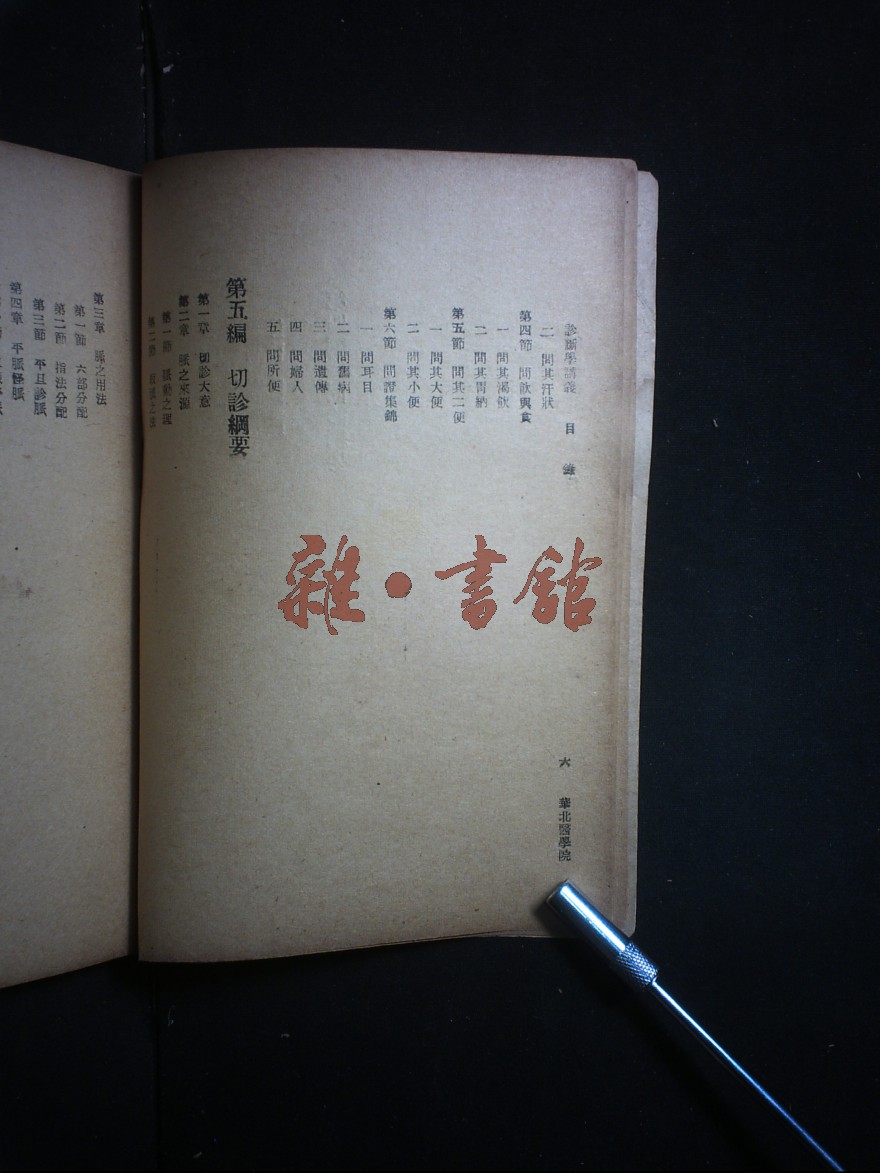 診斷學講義 目錄
二 問其汗狀
第四節 問飲與食
一 問其渴飲
二 問其胃納
第五節 問其二便
一 問其大便
二 問其小便
第六節 問證集錦
一 問耳目
二 問舊病
三 問遺傳
四 問婦人
五 問所便
第五編 切診綱要
第一章 切診大意
第二章 脈之來源
第一節 脈動之說
第二節 之法
六 華北醫學院
第三章 脈之用法
第一節 六部分配
第二節 指法分配
第三節 平旦診脈
第四章 平脈怪脈
雜•書館